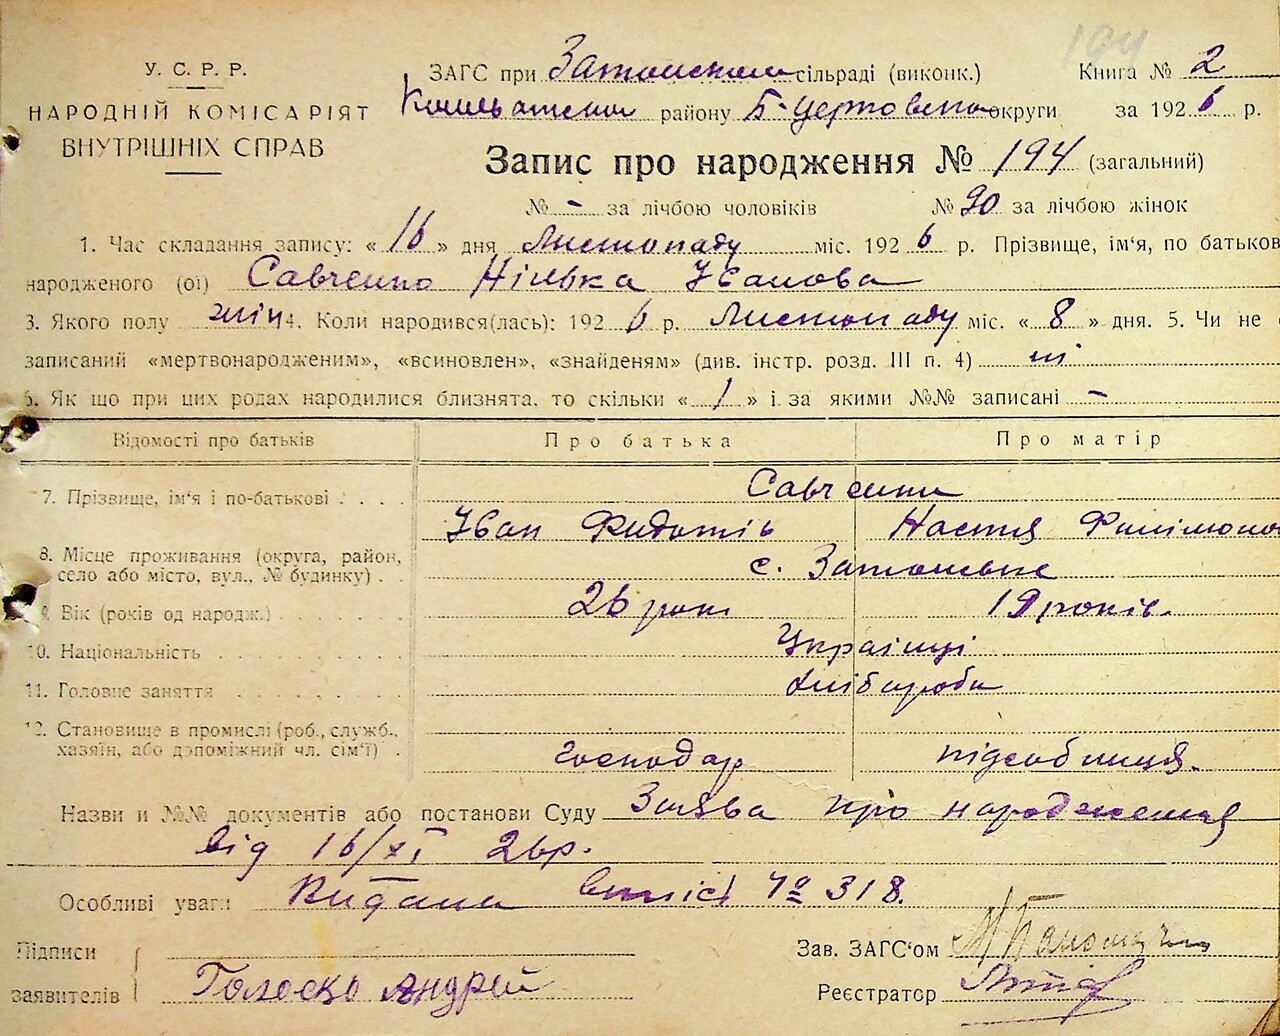 194
У. С. Р. Р.
НАРОДНІЙ КОМІСАРІЯТ
ВНУТРІШНІХ СПРАВ
ЗАГС при Затонском сільраді (виконк.)
району Б-Церковсько округи
Книга № 2
за 1926 р.
Запис про народження № 194 (загальний)
№ - за лічбою чоловіків № 90 за лічбою жінок
1. Час складання запису: « 16 » дня Листопаду міс. 1926 р. Прізвище, ім‘я, по батьков
народженого (ої) Савченко Нілька Іванова
3. Якого полу жін 4. Коли народився(лась): 1926 р. Листопаду міс. « 8 » дня. 5. Чи не
записаний «мертвонародженим», «всиновлен», «знайденям» (див. інстр. розд. III п. 4) ні
6. Як що при цих родах народилися близнята, то скільки « 1 » і за якими №№ записані -
Відомості про батьків Про батька Про матір
7. Прізвище, ім‘я і по-батькові Савченки
Іван Федотів Настя Филімоно
8. Місце проживання (округа, район,
село або місто, вул., № будинку) с. Затонське
9. Вік (років од народж.) 26 рокі 19 років.
10. Національність Українці
11. Головне заняття Хлібороби
12. Становище в промислі (роб., служб.,
хазяїн, або допоміжний чл. сім‘ї) господар підсобниця.
Назви и №№ документів або постанови Суду Заява про народження
від 16/XI 26р.
Особливі уваги: Видана випіс № 318.
Підписи
заявителів Голоско Андрей
Зав. ЗАГС‘ом
Реєстратор